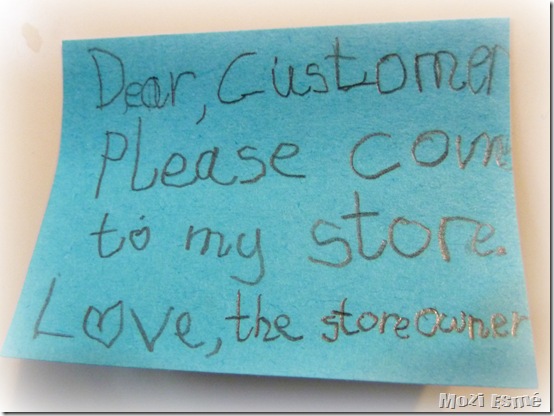 Dear, Customer
Please come
to my store.
Love, the storeowner
Mozi Esmé